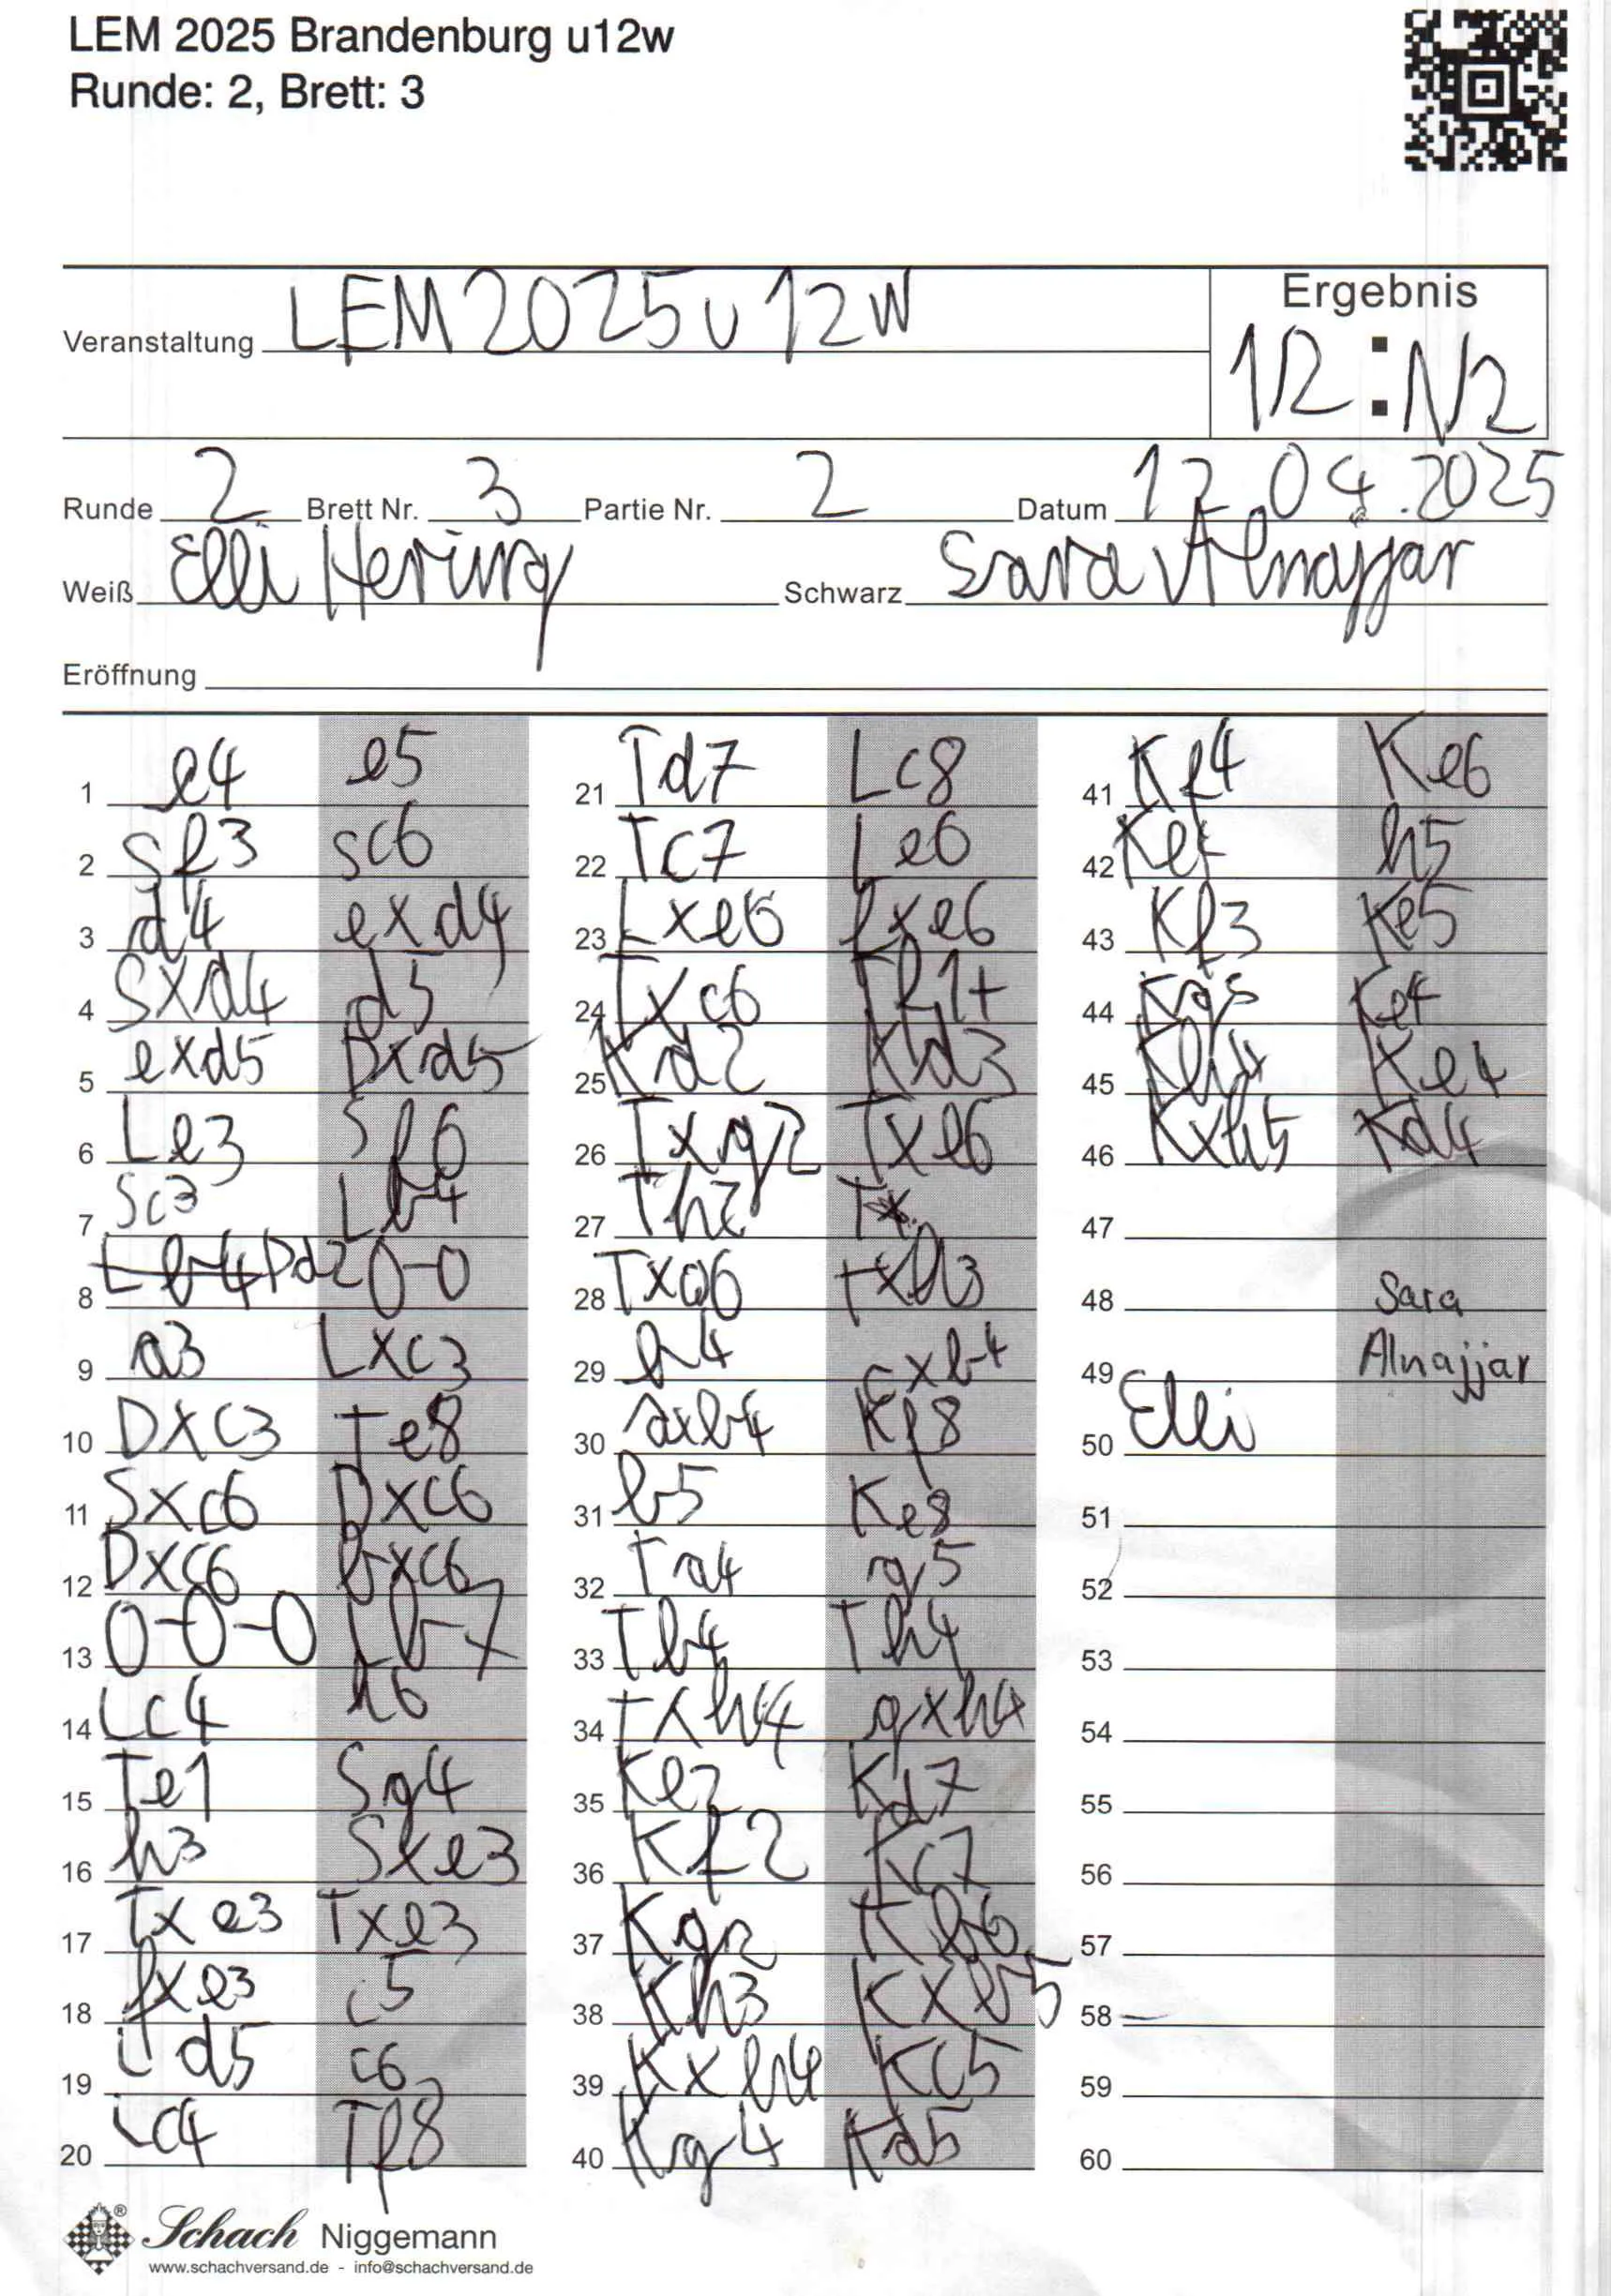 LEM 2025 Brandenburg u12w
Runde: 2, Brett: 3
Ergebnis
Veranstaltung LEM2025u12w
1/2 : 1/2
Runde 2 Brett Nr. 3 Partie Nr. 2 Datum 12.04.2025
Weiß Elli Hering Schwarz Sara Alnajjar
Eröffnung
1 e4 e5
2 Sf3 Sc6
3 d4 exd4
4 Sxd4 d5
5 exd5 Dxd5
6 Le3 Sf6
7 Sc3 Lb4
8 Lb4 Dd2 0-0
9 a3 Lxc3
10 Dxc3 Te8
11 Sxc6 Dxc6
12 Dxc6 bxc6
13 0-0-0 Lb7
14 Lc4 h6
15 Te1 Sg4
16 h3 Sxe3
17 Txe3 Txe3
18 fxe3 c5
19 Ld5 c6
20 Lc4 Tf8
21 Td7 Lc8
22 Tc7 Le6
23 Lxe6 fxe6
24 Txc6 Tf1+
25 Kd2 Kd3
26 Txg2 Txe6
27 Th2 Tx
28 Txa6 txh3
29 b4 cxb4
30 axb4 Kf8
31 b5 Ke8
32 Ta4 g5
33 Tb4 Th4
34 Txh4 gxh4
35 Ke2 Kd7
36 Kf2 Kc7
37 Kg2 Kb6
38 Kh3 Kxb5
39 Kxh4 Kc5
40 Kg4 Kd5
41 Kf4 Ke6
42 Ke4 h5
43 Kf3 Ke5
44 Kg3 Ke4
45 Kh4 Ke4
46 Kxh5 Kd4
47
48 Sara
49 Alnajjar
50 Elli
51
52
53
54
55
56
57
58
59
60
Schach Niggemann
www.schachversand.de - info@schachversand.de